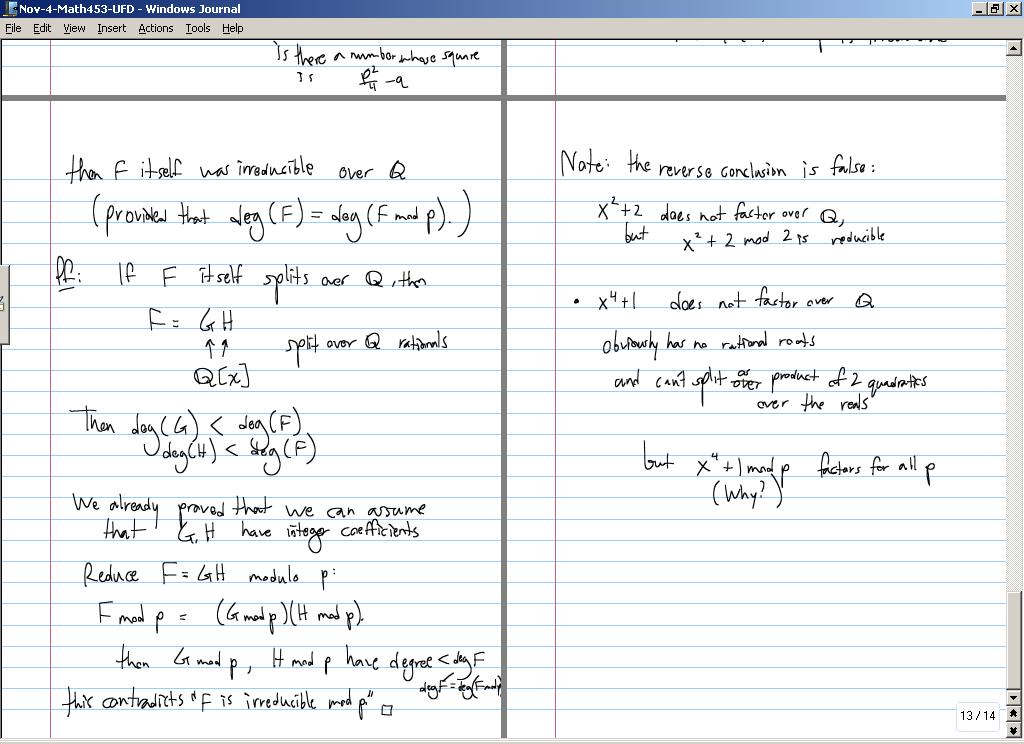 Nov-4-Math453-UFD - Windows Journal
File Edit View Insert Actions Tools Help
Is there a number whose square
is p²/4 - q
then F itself was irreducible over Q
(provided that deg(F) = deg(F mod p).)
Pf: If F itself splits over Q, then
F = GH
↑↑ split over Q rationals
Q[x]
Then deg(G) < deg(F)
deg(H) < deg(F)
We already proved that we can assume
that G, H have integer coefficients
Reduce F = GH modulo p:
F mod p = (G mod p)(H mod p).
then G mod p, H mod p have degree < deg F
deg F = deg(F mod p)
this contradicts "F is irreducible mod p" □
Note: the reverse conclusion is false:
x²+2 does not factor over Q,
but x² + 2 mod 2 is reducible
• x⁴+1 does not factor over Q
obviously has no rational roots
and can't split as product of 2 quadratics
over the reals
but x⁴+1 mod p factors for all p
(Why?)
13 / 14